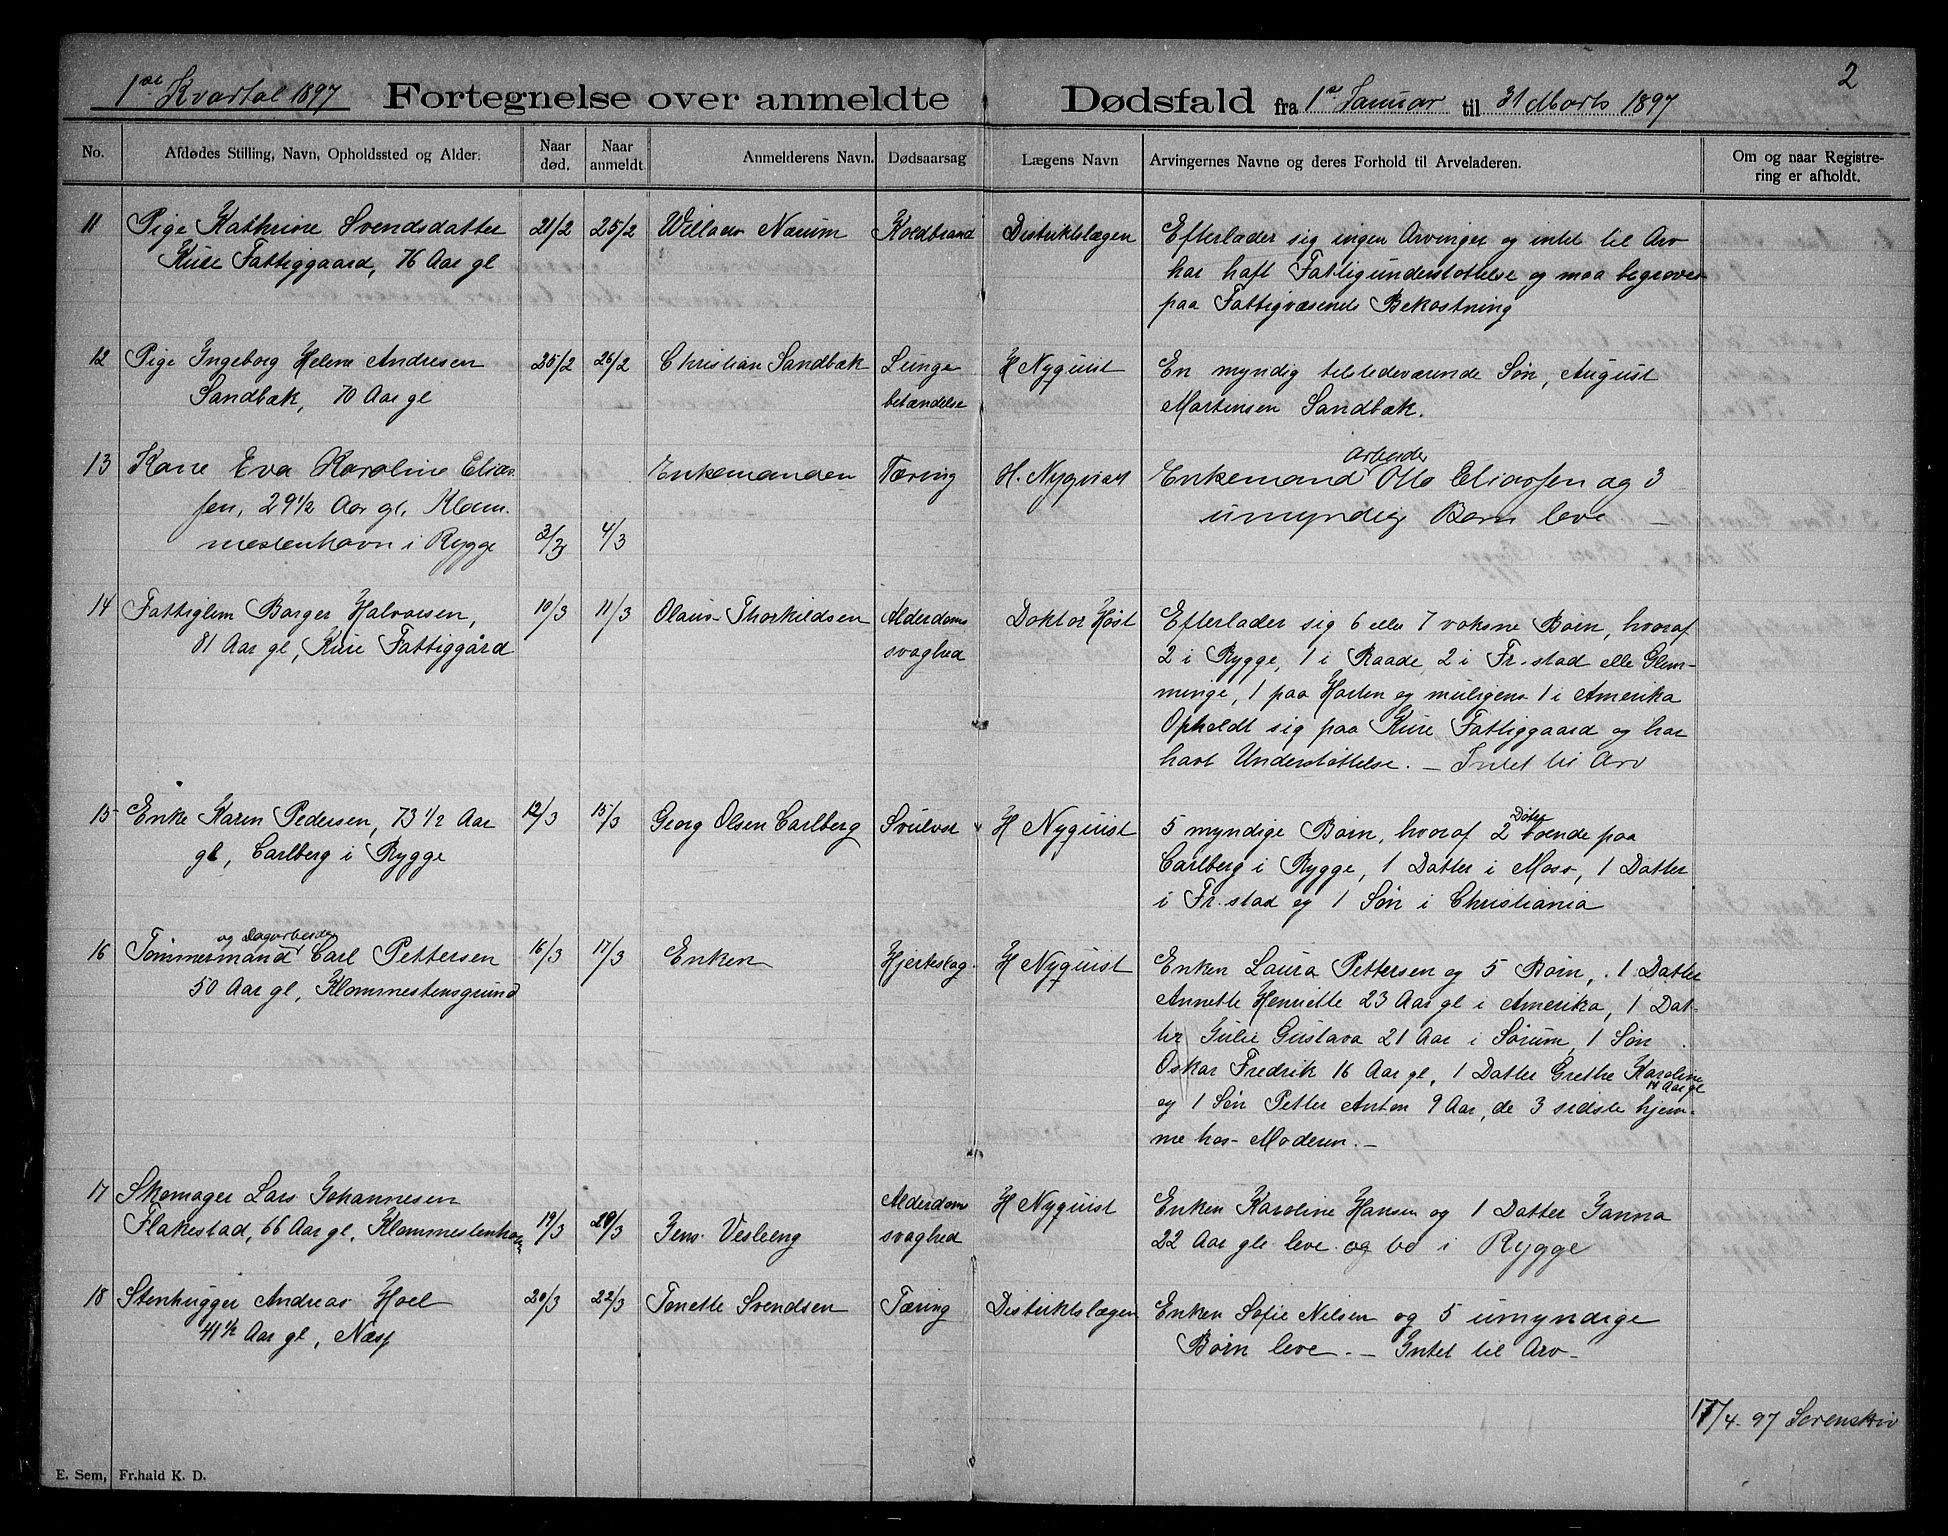 2
1ste Kvartal 1897 Fortegnelse over anmeldte Dødsfald fra 1ste Januar til 31 Marts 1897
No. Afdødes Stilling, Navn, Opholdssted og Alder. Naar død. Naar anmeldt. Anmelderens Navn. Dødsaarsag Lægens Navn Arvingernes Navne og deres Forhold til Arveladeren. Om og naar Registrering er afholdt.
11 Pige Kathrine Svendsdatter 21/2 25/2 Willads Narum Koldbrand Distriktslægen Efterlader sig ingen Arvinger og intet til Arv
Kure Fattiggaard, 76 Aar gl har haft Fattigunderstøttelse og maa begraves
paa Fattigvæsenets Bekostning
12 Pige Ingeborg Helene Andresen 25/2 26/2 Christian Sandbæk Lunge H Nyquist En myndig tilstedeværende Søn, August
Sandbæk, 70 Aar gl betændelse Martinsen Sandbæk.
13 Kone Eva Karoline Elias Enkemanden Tæring H. Nyqvist Enkemand Arbeider Otto Eliassen og 3
sen, 29 1/2 Aar gl, Klom umyndige Børn leve —
mestenhavn i Rygge 3/3 4/3
14 Fattiglem Borger Halvorsen, 10/3 11/3 Olaus Thorkildsen Alderdoms Doktor Høst Efterlader sig 6 eller 7 voksne Børn, hvoraf
81 Aar gl, Kure Fattiggård svaghed 2 i Rygge, 1 i Raade, 2 i Fr.stad eller Glem-
minge, 1 paa Horten og muligens 1 i Amerika
Opholdt sig paa Kure Fattiggaard og har
havt Understøttelse. — Intet til Arv
15 Enke Karen Pedersen, 73 1/2 Aar 12/3 15/3 Georg Olsen Carlberg Svulst H Nyquist 5 myndige Børn, hvoraf 2 Døtre boende paa
gl, Carlberg i Rygge Carlberg i Rygge, 1 Datter i Moss, 1 Datter
i Fr.stad og 1 Søn i Christiania
16 Tømmermand og Dagarbeider Carl Pettersen 16/3 17/3 Enken Hjerteslag H Nyquist Enken Laura Pettersen og 5 Børn, 1 Datter
50 Aar gl, Klommestensgrund Annette Henriette 23 Aar gl i Amerika, 1 Dat-
ter Julie Gustava 21 Aar i Sørum, 1 Søn
Oskar Fredrik 16 Aar gl, 1 Datter Grethe Karoline 14 Aar gl
og 1 Søn Petter Anton 9 Aar, de 3 sidste hjem-
me hos Moderen. —
17 Skomager Lars Johannesen Alderdoms H Nyquist Enken Karoline Hansen og 1 Datter Janna
Flakestad, 66 Aar gl, Klommestenhavn 19/3 20/3 Jens Vesteng svaghed 22 Aar gle leve og bo i Rygge
18 Stenhugger Andreas Hoel 20/3 22/3 Tonette Svendsen Tæring Distriktslægen Enken Sofie Nilsen og 5 umyndige
41 1/2 Aar gl, Næsf Børn leve. — Intet til Arv —
17/4 - 97 Sorenskriv
E. Sem, Fr.hald K. D.